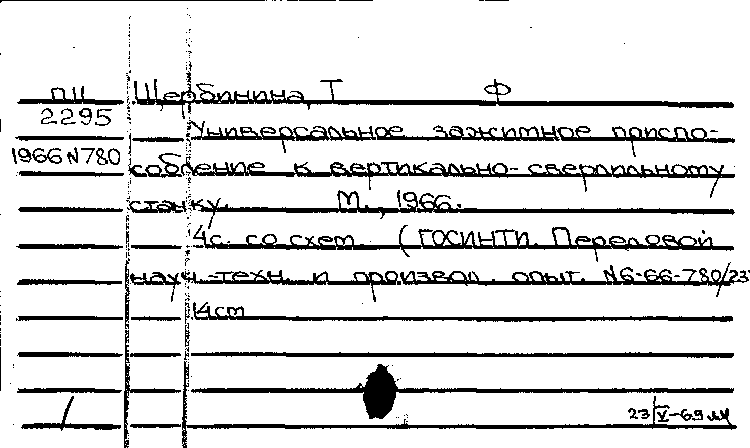 ПИ
2295
1966 N780
Щербинина, Т Ф
Универсальное зажимное приспо-
собление к вертикально-сверлильному
станку. М., 1966.
4с. со схем. (ГОСИНТИ. Передовой
научн.-техн. и произвол. опыт. N6-66-780/23
14cm
23/V-69